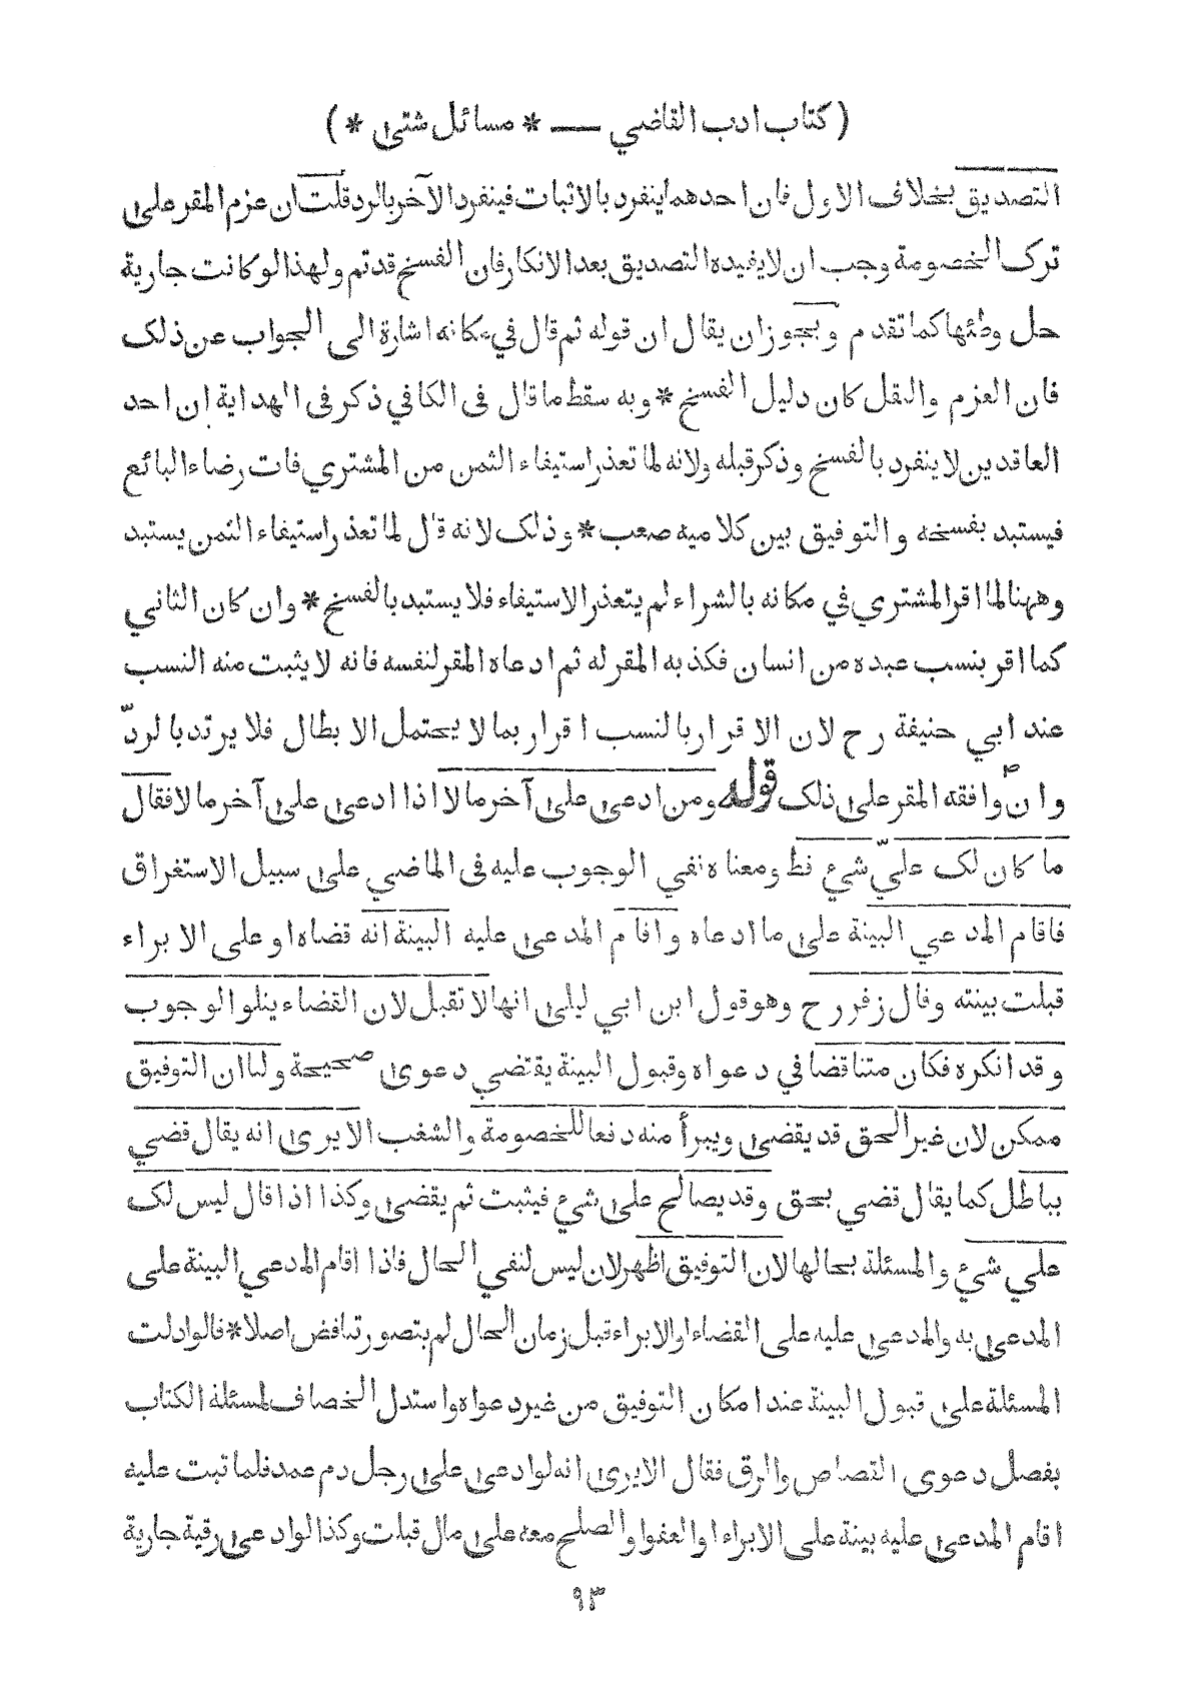 ( كتاب ادب القاضي ـــ * مسائل شتى * )
التصديق بخلاف الاول فان احدهما ينفرد بالاثبات فينفرد الآخر بالرد قلت ان عزم المقر على
ترك الخصومة وجب ان لا يفيده التصديق بعد الانكار فان الفسخ قد تم ولهذا لو كانت جارية
حل وطئها كما تقدم ويجوز ان يقال ان قوله ثم قال في مكانه اشارة الى الجواب عن ذلك
فان العزم والنقل كان دليل الفسخ * وبه سقط ما قال فى الكافي ذكر فى الهداية ان احد
العاقدين لا ينفرد بالفسخ وذكر قبله ولانه لما تعذر استيفاء الثمن من المشتري فات رضاء البائع
فيستبد بفسخه والتوفيق بين كلاميه صعب * وذلك لانه قال لما تعذر استيفاء الثمن يستبد
وههنا لما اقر المشتري في مكانه بالشراء لم يتعذر الاستيفاء فلا يستبد بالفسخ * وان كان الثاني
كما اقر بنسب عبده من انسان فكذبه المقر له ثم ادعاه المقر لنفسه فانه لا يثبت منه النسب
عند ابي حنيفة رح لان الاقرار بالنسب اقرار بما لا يحتمل الابطال فلا يرتد بالردّ
وان وافقه المقر على ذلك قوله ومن ادعى على آخر مالا اذا ادعى على آخر مالا فقال
ما كان لك عليّ شيء قط ومعناه نفي الوجوب عليه فى الماضي على سبيل الاستغراق
فاقام المدعي البينة على ما ادعاه واقام المدعى عليه البينة انه قضاه او على الابراء
قبلت بينته وقال زفر رح وهو قول ابن ابي ليلى انها لا تقبل لان القضاء يتلو الوجوب
وقد انكره فكان متناقضا في دعواه وقبول البينة يقتضي دعوى صحيحة ولنا ان التوفيق
ممكن لان غير الحق قد يقضى ويبرأ منه دفعا للخصومة والشغب الا يرى انه يقال قضي
بباطل كما يقال قضي بحق وقد يصالح على شيء فيثبت ثم يقضى وكذا اذا قال ليس لك
علي شيء والمسئلة بحالها لان التوفيق اظهر لان ليس لنفي الحال فاذا اقام المدعي البينة على
المدعى به والمدعى عليه على القضاء او الابراء قبل زمان الحال لم يتصور تناقض اصلا * قالوا دلت
المسئلة على قبول البينة عند امكان التوفيق من غير دعواه واستدل الخصاف لمسئلة الكتاب
بفصل دعوى القصاص والرق فقال الا يرى انه لو ادعى على رجل دم عمد فلما ثبت عليه
اقام المدعى عليه بينة على الابراء او العفو او الصلح معه على مال قبلت وكذا لو ادعى رقبة جارية
٩٣